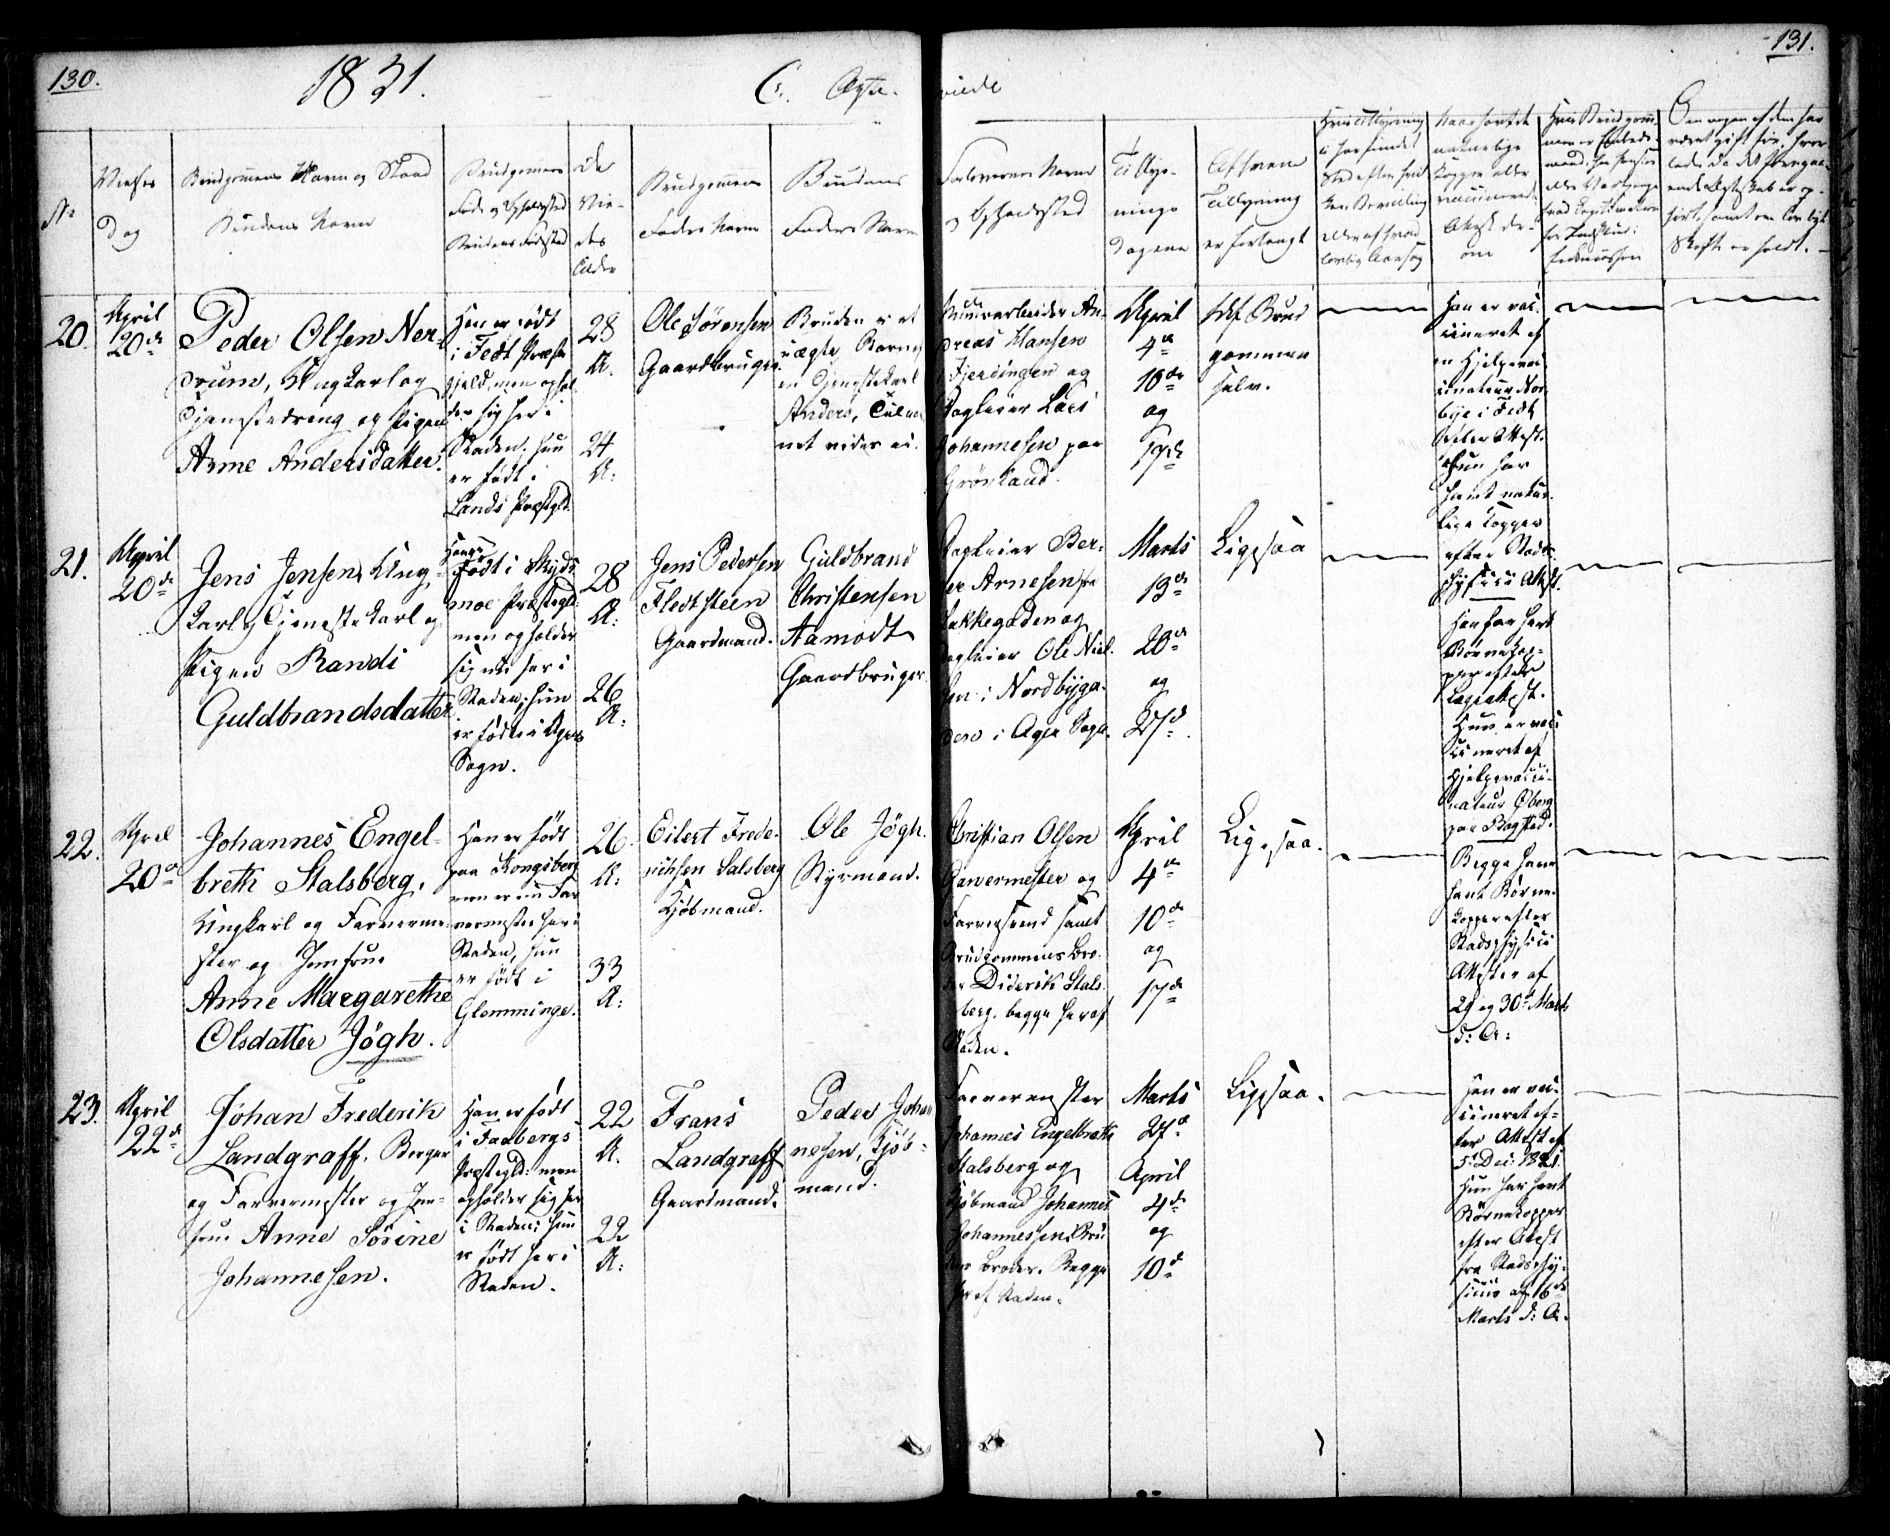 130.
1831.
C. Ægte-
viede
131.
No
Vielses
Dag
Brudgommens Navn og Stand
Brudens Navn
Brudgommens
Føde og Opholdssted
Brudens Fødested
De
Vie-
des
Alder
Brudgommens
Faders Navn
Brudens
Faders Navn
Forlovernes Navn
og Opholdssted
Tillys-
nings
Dagene
Af hvem
Tillysning
er forlangt
20.
April
20de
Peder Olsen Nor-
drum, Ungkarl og
Tjenestedreng og Pigen
Anne Andersdatter.
Han er født
i Fedt Præste
gjeld, men ophol
der sig her i
Staden. Hun
er født i
Lands Præstgld.
28
A.
24
A:
Ole Sørensen
Gaardbruger.
Bruden er et
uægte Barn
en Tjenestekarl
Anders,
net vides ei.
Muurarbeider An-
dreas Hansen
i Fjerdingen og
Dagleier Lars
Johannesen paa
Grønland.
April
4de
10de
og
17de
Af Brud
gommen
selv.
Han er vac-
cineret af
en Hjelpevac-
cinateur Nor-
bye i Fedt
Attest.
Hun har
havt natur-
lige Kopper
efter Stads-
physici Attest.
21.
April
20de
Jens Jensen, Ung-
karl og Tjenestekarl og
Pigen Randi
Guldbrandsdatter
Han er
født i Skyds
moe Præstegld:
men opholder
sig nu her i
Staden; Hun
er født i Agers
Sogn.
28
A:
26
A:
Jens Pedersen
Fledtsteen
Gaardmand.
Guldbrand
Christensen
Aamodt
Gaardbruger.
Dagleier Ber-
er Arnesen fra
Lakkegaden og
Dagleier Ole Niel-
sen i Nordbyga-
den i Ager Sogn.
Marts
13de
20de
og
27de.
Ligesaa
Han har havt
Børnekop-
per efter
Lægeattest.
Hun er vac-
cineret af
Hjelpevacci-
nateur Øberg
paa Bogstad.
22.
April
20de
Johannes Engel-
breth Stalsberg,
Ungkarl og Farverme-
ster og Jomfrue
Anne Margarethe
Olsdatter Jøgh.
Han er født
paa Kongsberg
men er nu Far
vermester her i
Staden, Hun
er født i
Glemminge.
26
A:
33
A:
Eilert Frede-
richsen Stalsberg
Kjøbmand.
Ole Jøgh.
Styrmand.
Christian Olsen
Garvermester og
Farversvend samt
Brudgommens Bro-
der Diderik Stals-
berg. begge her af
Staden.
April
4de
10de
og
17de
Ligesaa.
Begge have
havt Børne
kopper efter
Stadsphysici
Attester af
29 og 30te Marts
d: A:
23.
April
22de
Johan Frederik
Landgraff, Borger
og Farvermester og Jom-
frue Anne Sørine
Johannesen.
Han er født
i Faabergs
Præstegld: men
opholder sig her
i Staden; Hun
er født her i
Staden.
22
A.
22
A:
Frans
Landgraff
Gaardmand.
Peder Johan
nesen, Kjøb-
mand.
Farvermester
Johannes Engelbreth
Stalsberg og
Kjøbmand Johannes
Johannessen, Bru
dens Broder. Begge
her af Staden.
Marts
27de
April
4de
og
10de
Ligesaa.
Han er vac-
cineret ef-
ter Attest af
5te Dec: 1821.
Hun har havt
Børnekopper
efter Attest
fra Stadsphy-
sicus af 16de
Marts d: A.